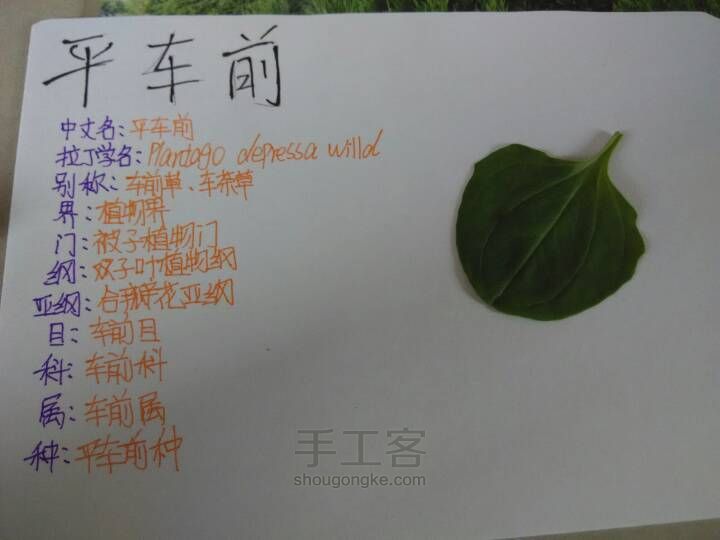 平车前
中文名：平车前
拉丁学名：Plantago depressa willd
别称：车前草、车茶草
界：植物界
门：被子植物门
纲：双子叶植物纲
亚纲：合瓣花亚纲
目：车前目
科：车前科
属：车前属
种：平车前种
手工客
shougongke.com